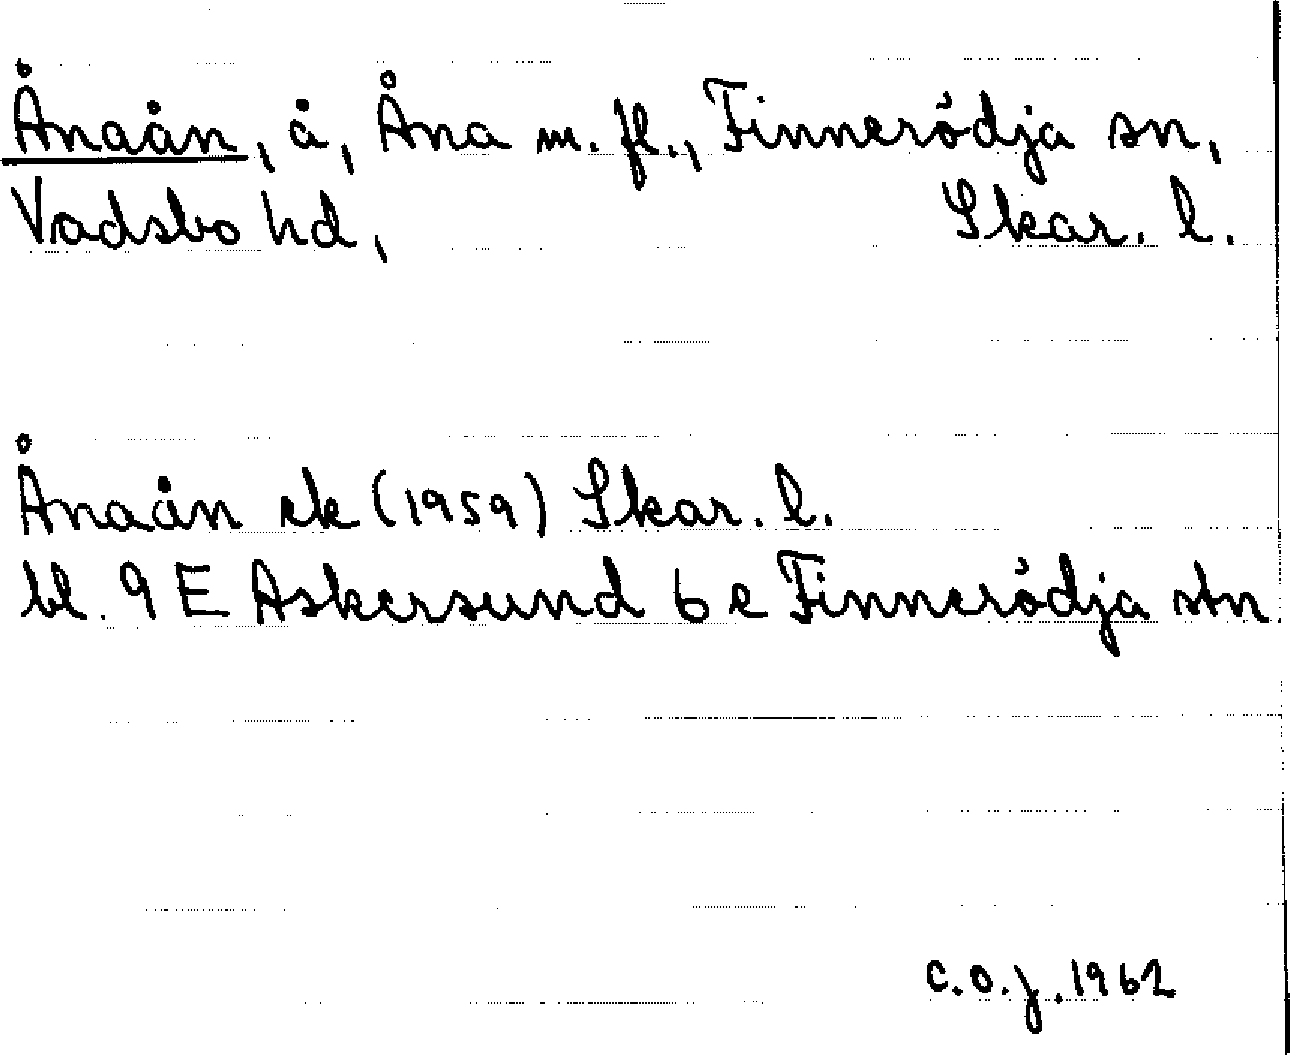 Ånaån, å, Åna m. fl., Finnerödja sn,
Vadsbo hd, Skar. l.
Ånaån ek (1959) Skar. l.
bl. 9 E Askersund 6 e Finnerödja stn
C.O.J. 1962